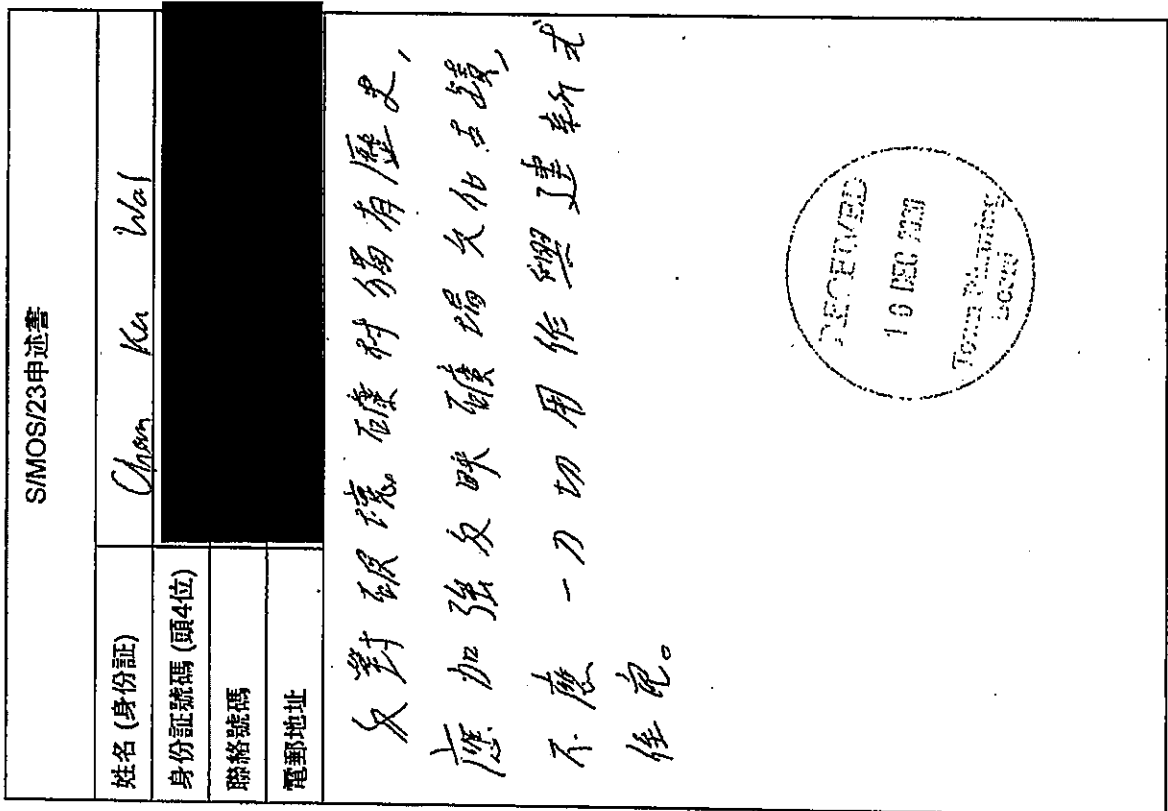 S/MOS/23申述書
姓名 (身份証)
Chan Ka Wai
身份証號碼 (頭4位)
聯絡號碼
電郵地址
反對破壞礦村獨有歷史,
應加強反映礦場文化古蹟,
不應一刀切用作興建新式
住宅。
RECEIVED
16 DEC 2020
Town Planning
Board